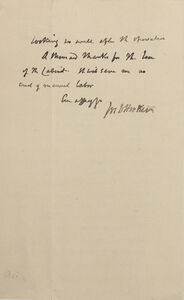 looking so well after the
A thousand thanks for the loan
of the Labels. It will save me no
end of manual labor
Ever affly yrs
Jos D Hooker